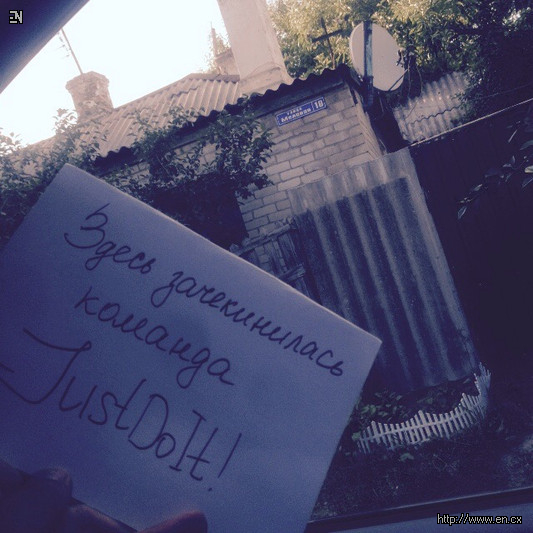 EN
улица
18
Здесь зачекинилась
команда
JustDoIt!
http://www.en.cx